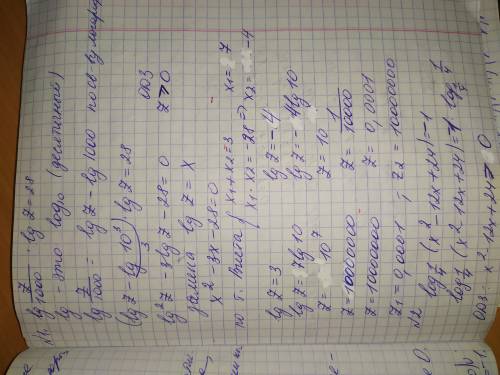 №1. lg z/1000 · lg z = 28
lg - это log₁₀ (десятичный)
lg z/1000 = lg z - lg 1000 по св-ву
(lg z - lg 10³) lg z = 28
lg² z - 3 lg z - 28 = 0
ОДЗ
z > 0
замена lg z = x
x² - 3x - 28 = 0
по т. Виета { x₁ + x₂ = 3
x₁ · x₂ = -28 => x₁ = 7
x₂ = -4
lg z = 3
lg z = -4
lg z = 7 lg 10
lg z = -4 lg 10
z = 10⁷
z = 10
z = 10000000
z = 1/10000
z = 10000000
z = 0,0001
z₁ = 0,0001 ; z₂ = 10000000
№2 (x² - 12x + 24) = -1
(x² - 12x + 24) =
ОДЗ: x² - 12x + 24 > 0